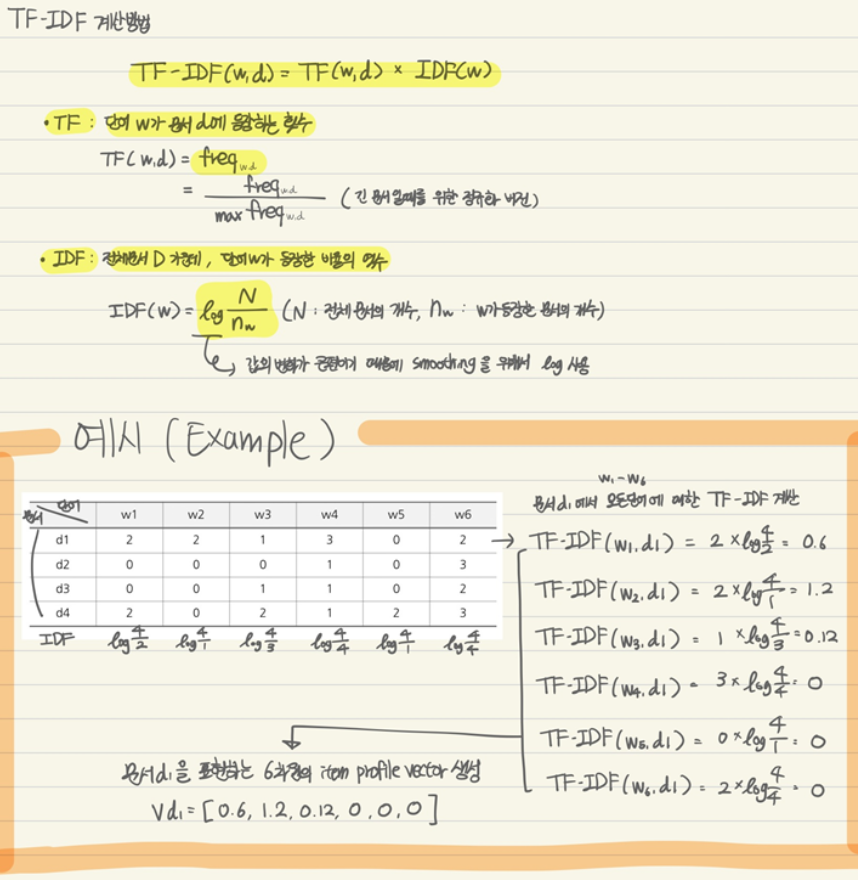 TF-IDF 계산방법
TF-IDF(w,d) = TF(w,d) × IDF(w)
• TF : 단어 w가 문서 d에 등장하는 횟수
TF(w,d) = freq w,d
= freq w,d / max freq w,d (긴 문서일때를 위한 정규화 버전)
• IDF : 전체문서 D 가운데, 단어w가 등장한 비율의 역수
IDF(w) = log N/nw (N : 전체 문서의 개수, nw : w가 등장한 문서의 개수)
값의 변화가 큰편이기 때문에 smoothing을 위해서 log 사용
예시 (Example)
문서 단어 w1 w2 w3 w4 w5 w6
d1 2 2 1 3 0 2
d2 0 0 0 1 0 3
d3 0 0 1 1 0 2
d4 2 0 2 1 2 3
IDF log 4/2 log 4/1 log 4/3 log 4/4 log 4/1 log 4/4
w1~w6
문서d1에서 모든단어에 대한 TF-IDF 계산
→ TF-IDF(w1,d1) = 2 × log 4/2 = 0.6
TF-IDF(w2,d1) = 2 × log 4/1 = 1.2
TF-IDF(w3,d1) = 1 × log 4/3 = 0.12
TF-IDF(w4,d1) = 3 × log 4/4 = 0
TF-IDF(w5,d1) = 0 × log 4/1 = 0
TF-IDF(w6,d1) = 2 × log 4/4 = 0
문서d1을 표현하는 6차원의 item profile vector 생성
Vd1 = [0.6, 1.2, 0.12, 0, 0, 0]